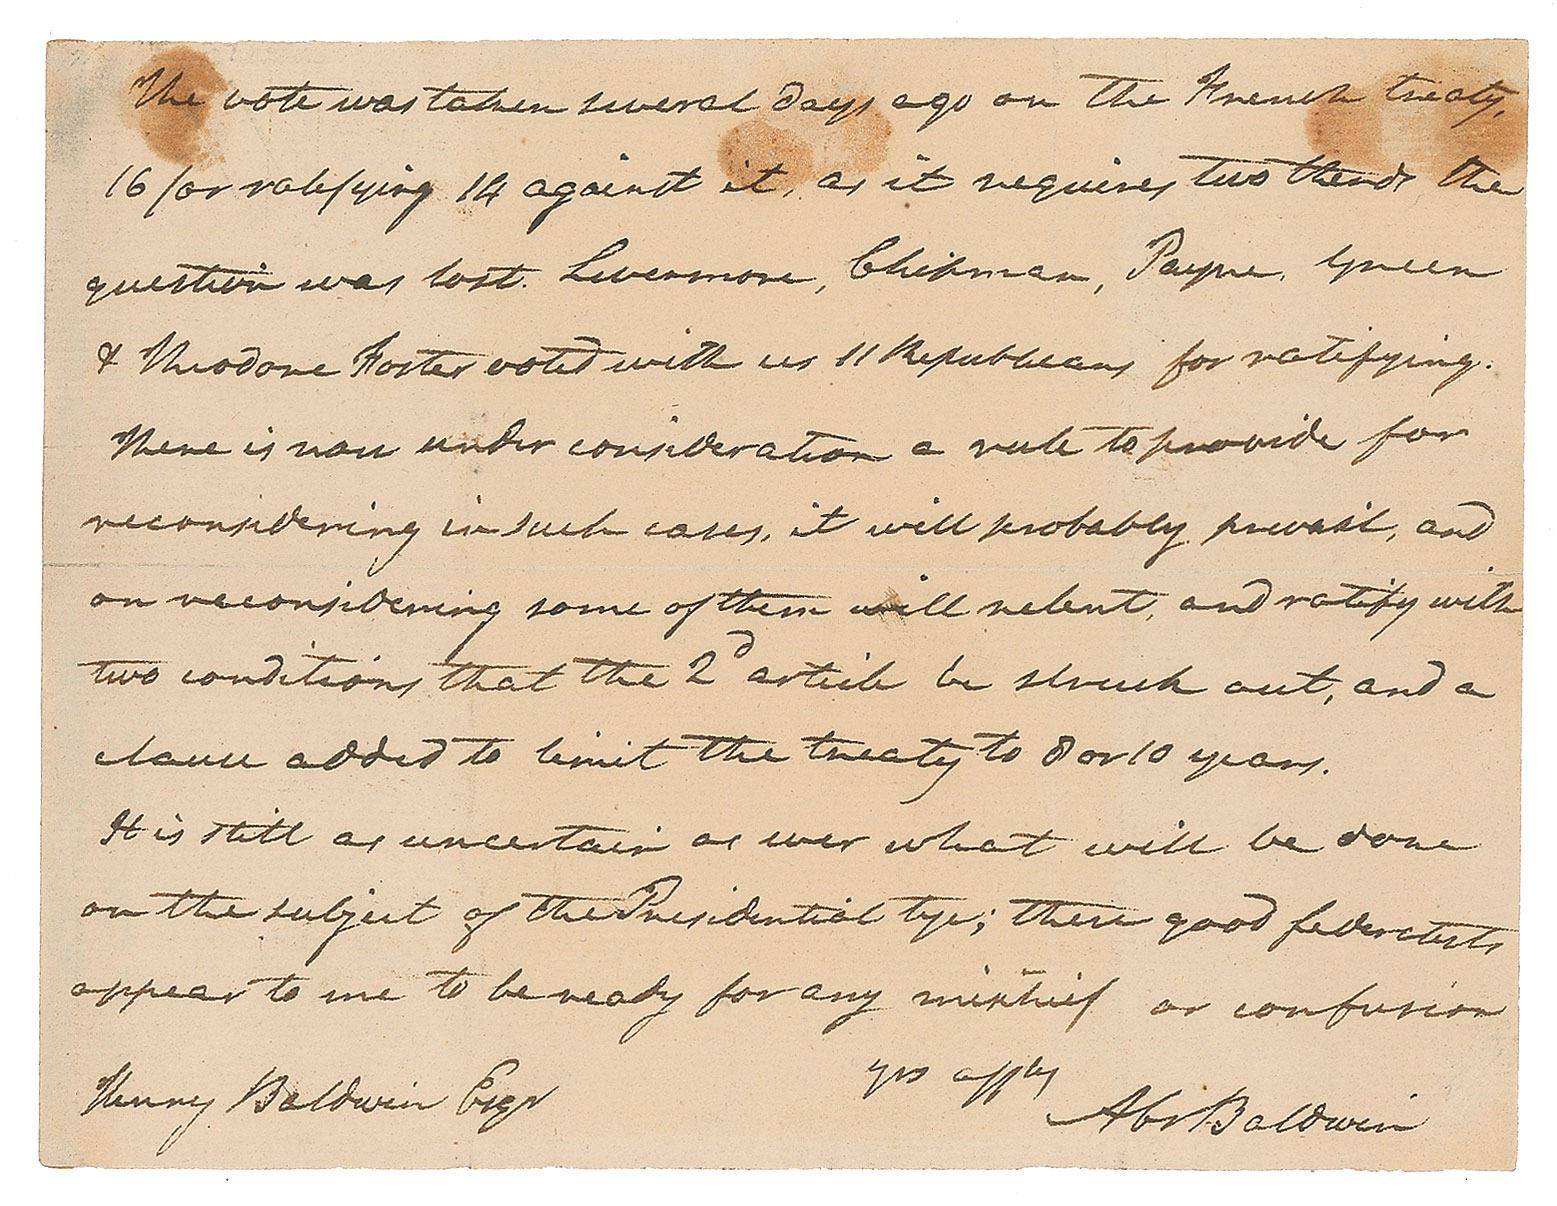 The vote was taken several days ago on the French treaty,
16 for ratifying 14 against it, as it requires two thirds the
question was lost. Livermore, Chipman, Payne, Green
& Theodore Foster voted with us 11 Republicans for ratifying.
There is now under consideration a rule to provide for
reconsidering in such cases, it will probably prevail, and
on reconsidering some of them will relent, and ratify with
two conditions that the 2d article be struck out, and a
clause added to limit the treaty to 8 or 10 years.
It is still as uncertain as ever what will be done
on the subject of the Presidential tye; these good federalists
appear to me to be ready for any mischief or confusion
yrs affly
Henry Baldwin Esqr
Abr Baldwin